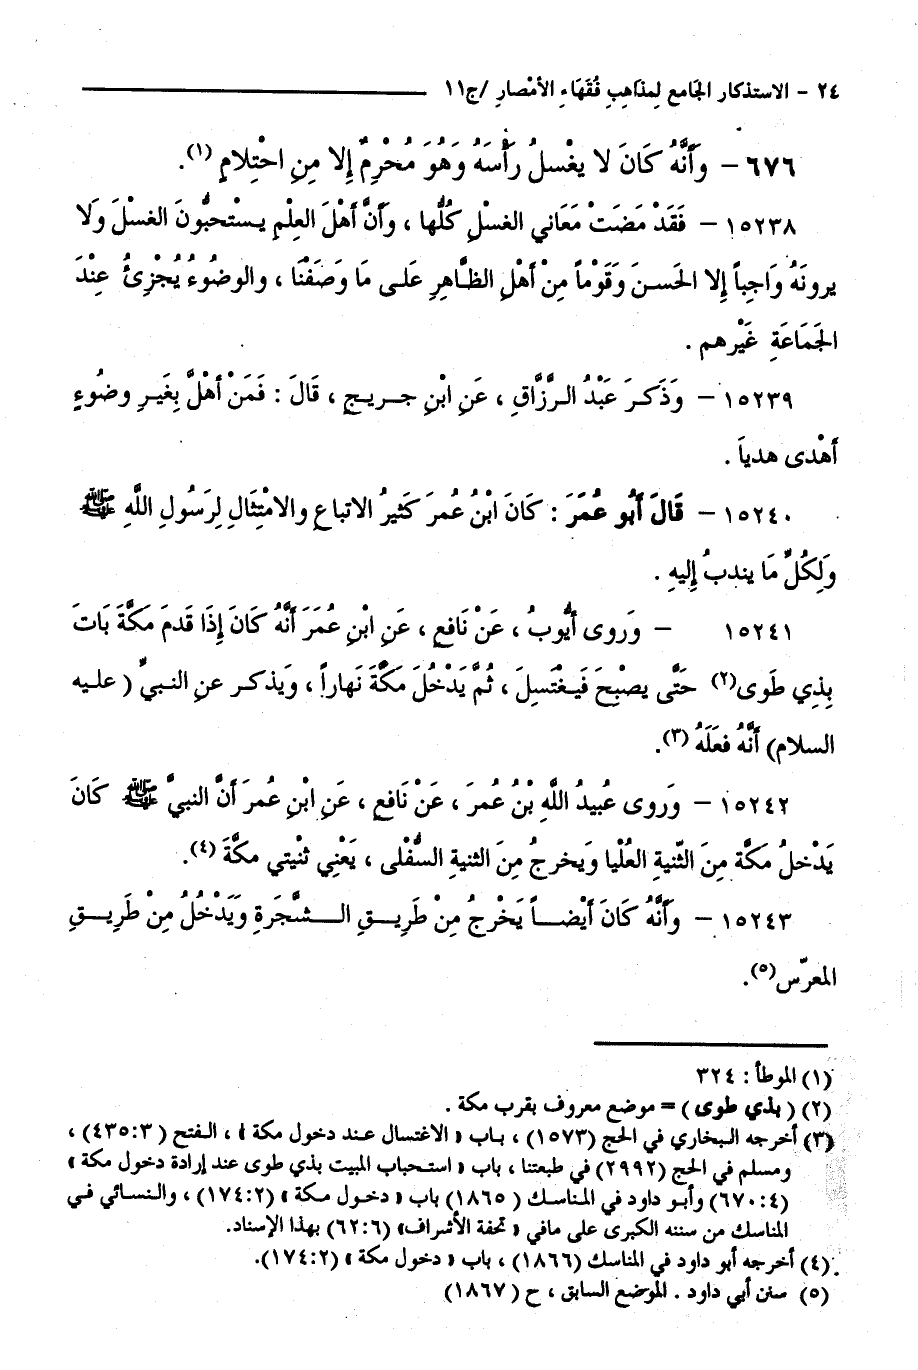 ٢٤ - الاستذكار الجَامع لِمذَاهِبِ فُقَهَاءِ الأمْصارِ /ج١١
٦٧٦ – وَأنَّهُ كَانَ لا يغْسلُ رَأْسَهُ وَهُوَ مُحْرِمٌ إِلا مِنِ احْتِلامٍ (١).
١٥٢٣٨ – فَقَدْ مَضَتْ مَعَاني الغسْلِ كُلُّها ، وَأنَّ أهْلَ العِلْمِ يستْحبُّونَ الغسْلَ وَلَا
يرونَهُ وَاجِباً إِلا الحَسنَ وَقَوْماً مِنْ أهْلِ الظَّاهِرِ عَلى مَا وَصَفْنَا ، والوضُوءُ يُجْزِئُ عِنْدَ
الجَمَاعَةِ غَيْرهم .
١٥٢٣٩ – وَذَكرَ عَبْدُ الرَّزَّاقِ ، عَنِ ابْنِ جريجٍ ، قَالَ : فَمَنْ أهْلَّ بِغَيرِ وضُوءٍ
أهْدى هدياً .
١٥٢٤٠ – قَالَ أبُو عُمَرَ : كَانَ ابْنُ عُمرَ كَثيرُ الاتباعِ والامْتِثَالِ لِرَسُولِ اللَّهِ ﷺ
وَلِكُلِّ مَا يندبُ إِليهِ .
١٥٢٤١ – وَروى أيُّوبُ ، عَنْ نَافعٍ ، عَنِ ابْنِ عُمَرَ أنَّهُ كَانَ إِذَا قَدمَ مَكَّةَ بَاتَ
بِذِي طَوى(٢) حَتَّى يصْبِحَ فَيغْتسِلَ ، ثُمَّ يَدْخُلَ مَكَّةَ نَهاراً ، وَيَذكر عنِ النبيِّ ( عليه
السلام) أنَّهُ فعَلَهُ (٣).
١٥٢٤٢ – وَروى عُبيدُ اللَّهِ بْنُ عُمرَ ، عَنْ نَافعٍ ، عَنِ ابْنِ عُمرَ أنَّ النبيَّ ﷺ كَانَ
يَدْخلُ مكَّة مِنَ الثّنيةِ العُلْيا وَيخرجُ مِنَ الثنيةِ السُّفْلى ، يَعْنِي ثنْيتي مكَّةَ (٤).
١٥٢٤٣ – وَأنَّهُ كَانَ أيْضاً يَخْرجُ مِنْ طَرِيقِ الشَّجَرَةِ وَيَدْخُلُ مِنْ طَرِيقِ
المعرّس(٥).
(١) الموطأ : ٣٢٤
(٢) ( بذي طوى ) = موضع معروف بقرب مكة .
(٣) أخرجه البخاري في الحج (١٥٧٣) ، باب « الاغتسال عند دخول مكة » ، الفتح ( ٣:٤٣٥) ،
ومسلم في الحج (٢٩٩٢) في طبعتنا ، باب « استحباب المبيت بذي طوى عند إرادة دخول مكة »
(٤:٦٧٠) وأبو داود في المناسك ( ١٨٦٥) باب « دخول مكة » (٢:١٧٤) ، والنسائي في
المناسك من سننه الكبرى على مافي « تحفة الأشراف» (٦:٦٢) بهذا الإسناد.
(٤) أخرجه أبو داود في المناسك (١٨٦٦) ، باب « دخول مكة » (٢:١٧٤).
(٥) سنن أبي داود . الموضع السابق ، ح ( ١٨٦٧)